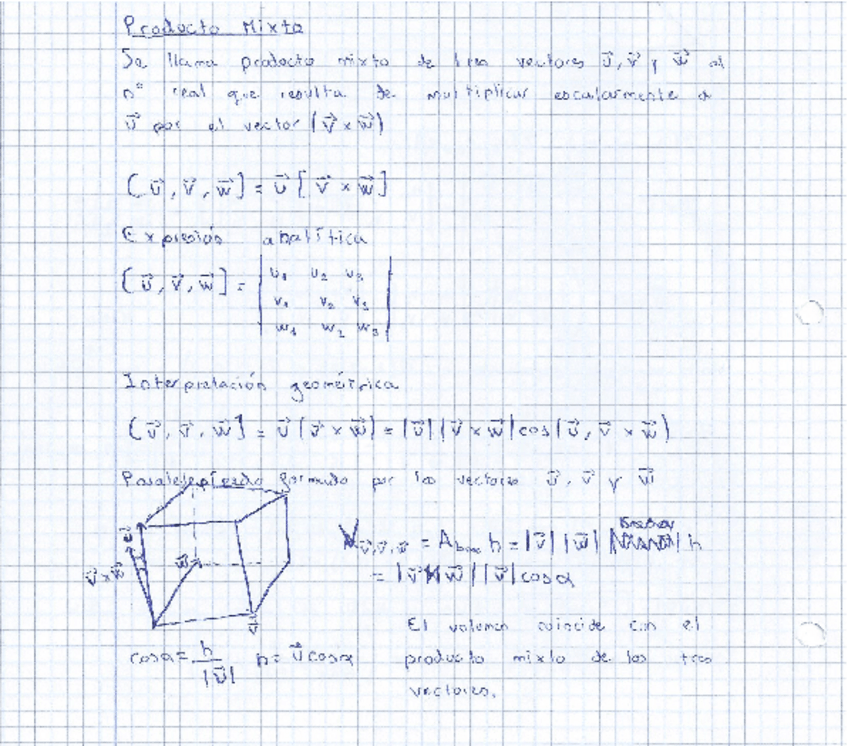 Producto Mixto
Se llama producto mixto de tres vectores u⃗, v⃗ y w⃗ al
nº real que resulta de multiplicar escalarmente a
u⃗ por el vector (v⃗ x w⃗)
[u⃗, v⃗, w⃗] = u⃗ [v⃗ x w⃗]
Expresión analítica
[u⃗, v⃗, w⃗] = | u₁ u₂ u₃
v₁ v₂ v₃
w₁ w₂ w₃ |
Interpretación geométrica
[u⃗, v⃗, w⃗] = u⃗ (v⃗ x w⃗) = |u⃗| |v⃗ x w⃗| cos(u⃗, v⃗ x w⃗)
Paralelepípedo formado por los vectores u⃗, v⃗ y w⃗
u⃗
v⃗ x w⃗
w⃗
v⃗
V u⃗,v⃗,w⃗ = A base h = |v⃗| |w⃗| h
= |v⃗ x w⃗| |u⃗| cosα
cosα = h / |u⃗| h = u⃗ cosα
El volumen coincide con el
producto mixto de los tres
vectores.